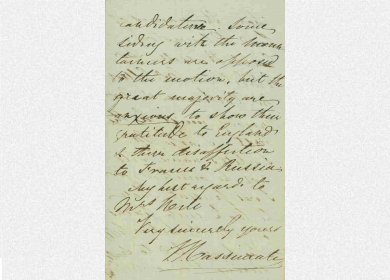 candidature. Some
siding with the moun
taineers are opposed
to the motion, but the
great majority are
anxious to show their
gratitude to England
& their disaffection
to France & Russia
My best regards to
Mrs
Very sincerely yours